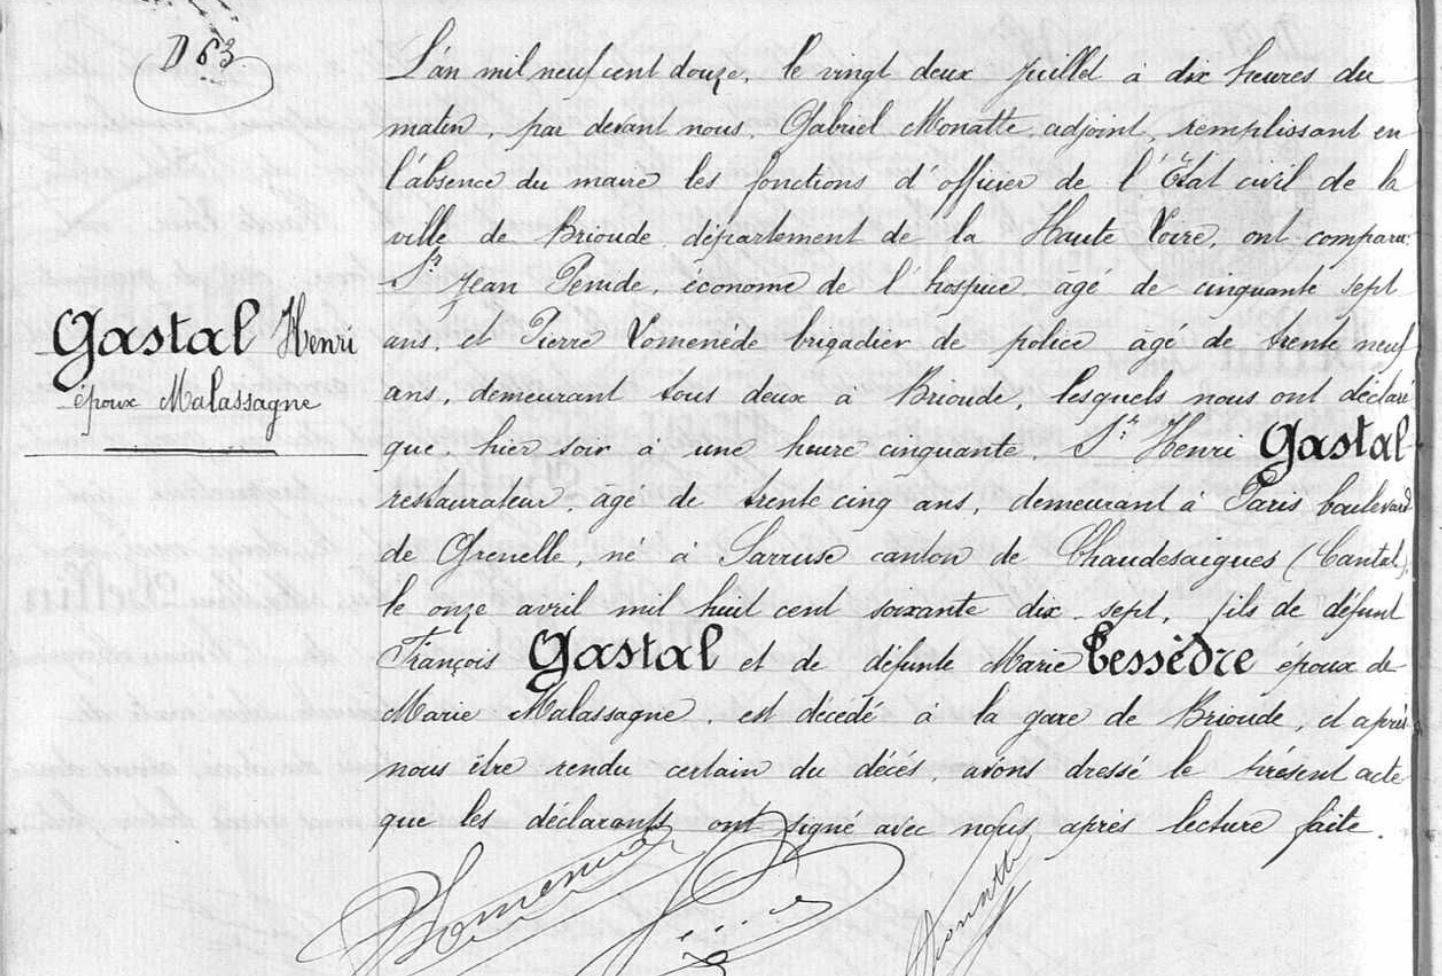 D 63
L'an mil neuf cent douze, le vingt deux juillet à dix heures du
matin, par devant nous, Gabriel Monatte, adjoint, remplissant en
l'absence du maire les fonctions d'officier de l'État civil de la
ville de Brioude, département de la Haute Loire, ont comparu:
Sr Jean Penide, économe de l'hospice, âgé de cinquante sept
Gastal Henri
époux Malassagne
ans, et Pierre Lomenéde brigadier de police âgé de trente neuf
ans, demeurant tous deux à Brioude, lesquels nous ont déclaré
que, hier soir à une heure cinquante, Sr Henri Gastal
restaurateur, âgé de trente cinq ans, demeurant à Paris boulevard
de Grenelle, né à Sarruse canton de Chaudesaigues (Cantal),
le onze avril mil huit cent soixante dix sept, fils de défunt
François Gastal et de défunte Marie Tessèdre époux de
Marie Malassagne, est décédé à la gare de Brioude, et après
nous être rendu certain du décès, avons dressé le présent acte
que les déclarants ont signé avec nous après lecture faite.
Lomenéde
Monatte